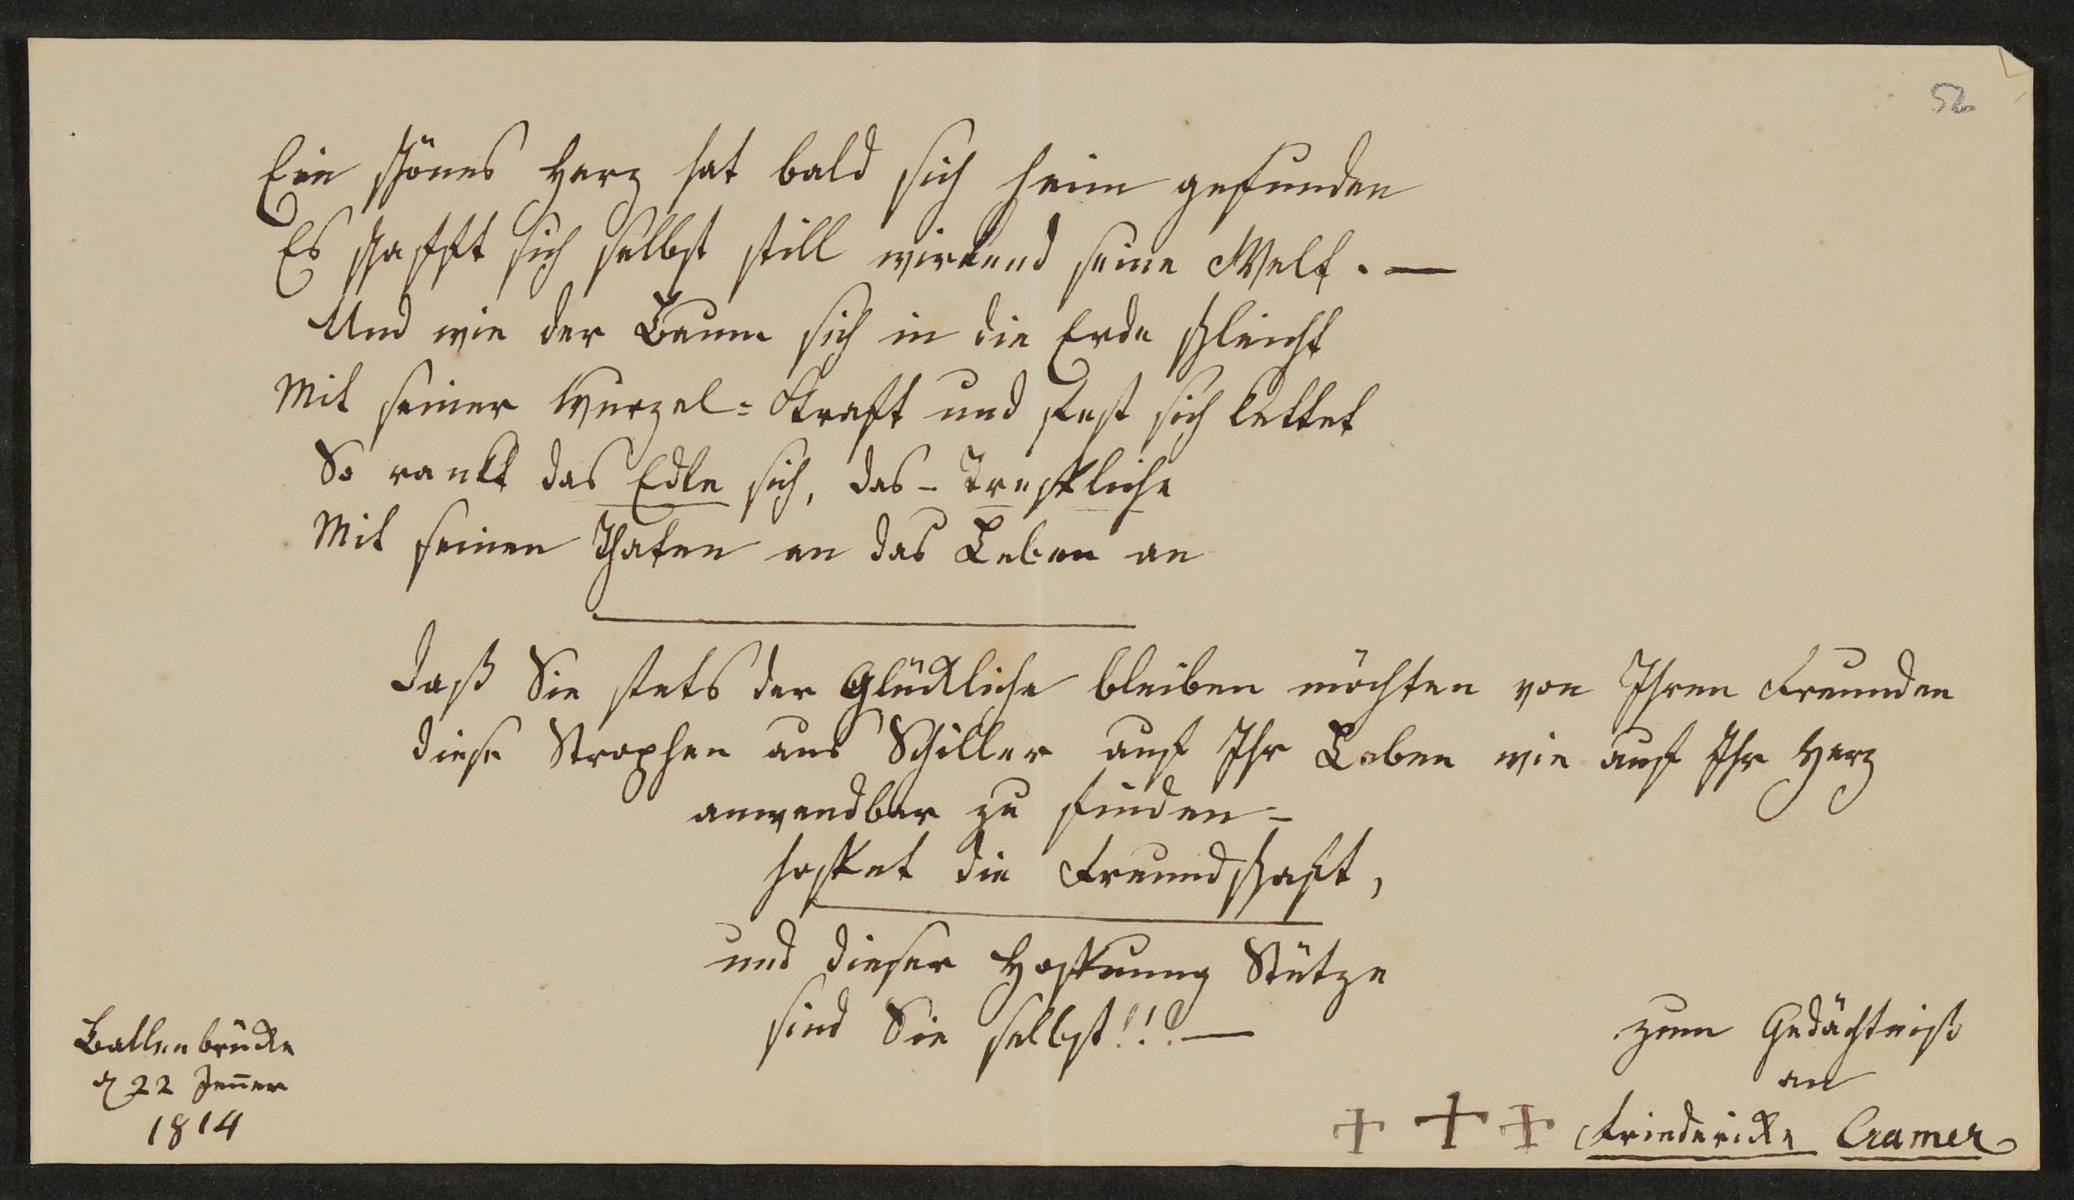 52
Ein schönes Herz hat bald sich heim gefunden
Es schafft sich selbst still wirkend seine Welt. —
Und wie der Baum sich in die Erde schleicht
Mit seiner Wurzel=Kraft und fest sich kettet
So rankt das Edle sich, das - Treffliche
Mit seinen Thaten an das Leben an
Daß Sie stets der Glückliche bleiben möchten von Ihren Freunden
diese Strophen aus Schiller auf Ihr Leben wie auf Ihr Herz
anwendbar zu finden -
hoffet die Freundschaft,
und dieser Hoffnung Stütze
sind Sie selbst!!! —
Ballenbrücke
d 22 Jen̄er
1814
zum Gedächtniß
an
+ + + Friedericke Cramer